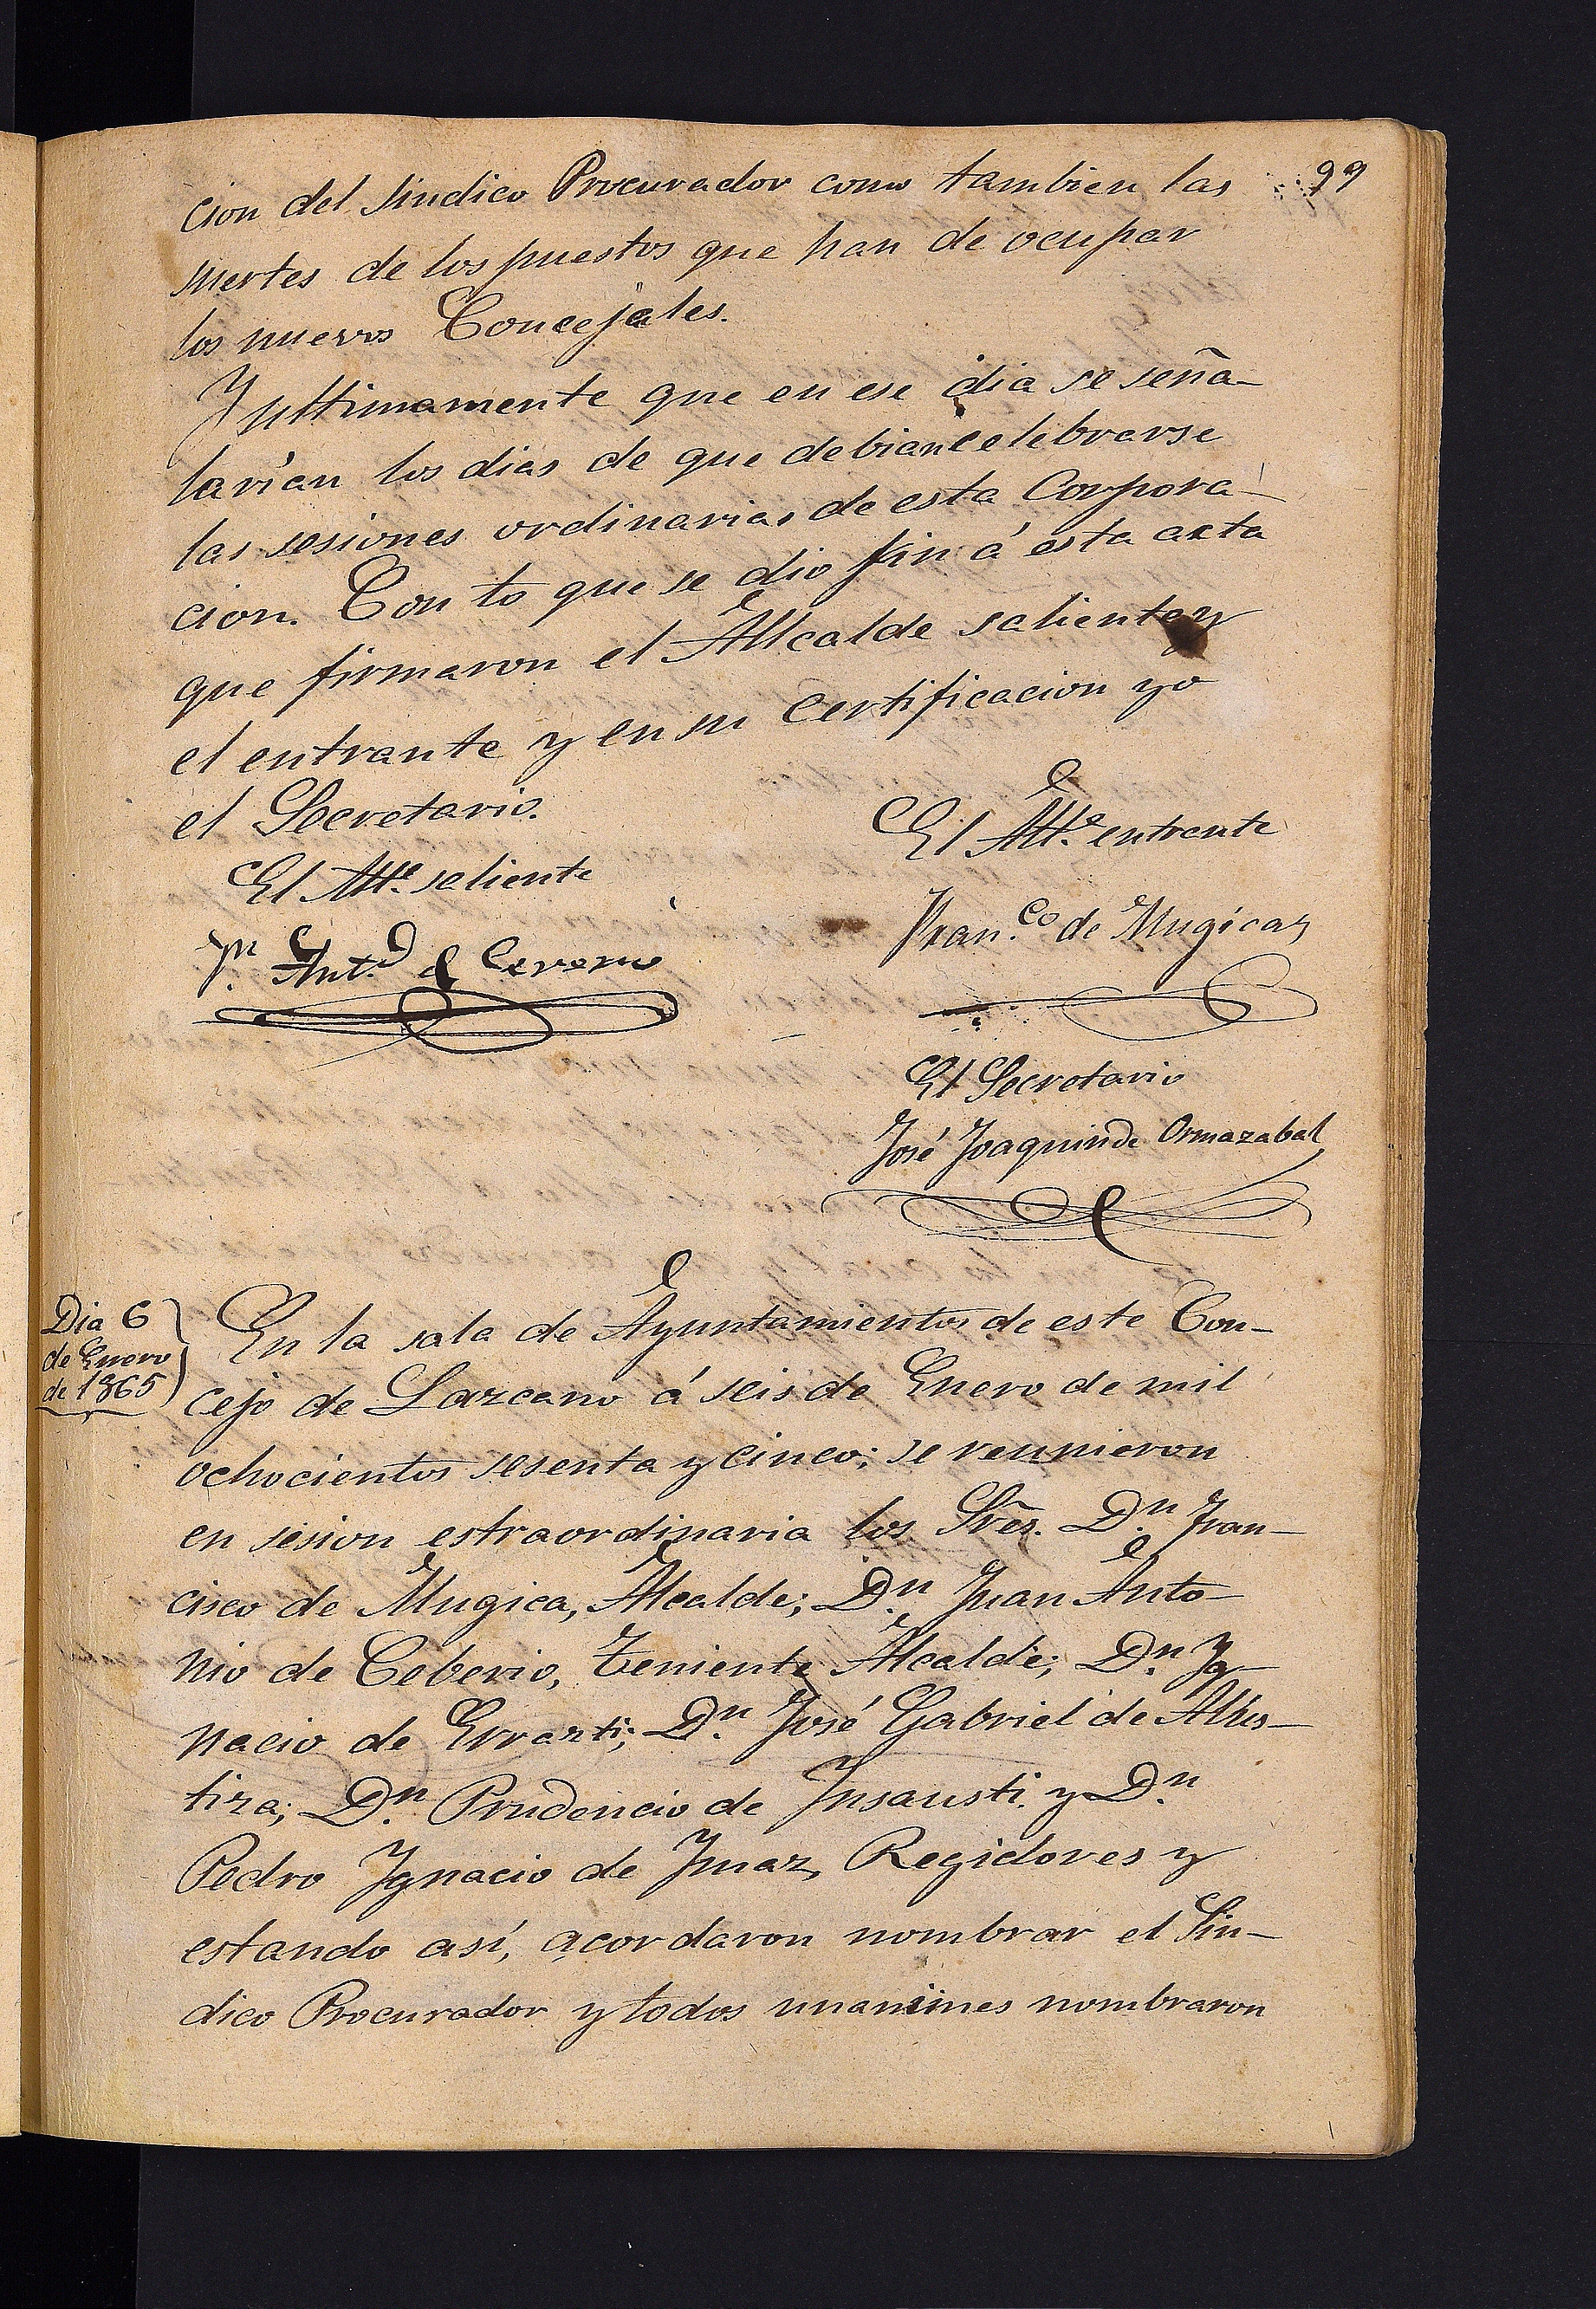 99
cion del Sindico Procurador como tambien las
suertes de los puestos que han de ocupar
los nuevos Concejales.
Y ultimamente que en ese dia se seña-
larían los dias de que debian celebrarse
las sesiones ordinarias de esta Corpora-
cion. Con lo que se dio fin á esta acta
que firmaron el Alcalde saliente y
el entrante y en su certificacion yo
el Secretario.
El Alle. saliente
El Alle. entrante
Jn. Anto. de
Fran.co de Mugica
El Secretario
José Joaquin de Ormazabal
Dia 6
de Enero
de 1865
En la sala de Ayuntamientos de este Con-
cejo de Lazcano á seis de Enero de mil
ochocientos sesenta y cinco; se reunieron
en sesion estraordinaria los Sres. Dn. Fran-
cisco de Mugica, Alcalde; Dn. Juan Anto-
nio de Ceberio, Teniente Alcalde; Dn. Yg-
nacio de Errazti; Dn. José Gabriel de Albis-
tiza; Dn. Prudencio de Ynsausti y Dn.
Pedro Ygnacio de Ymaz, Regidores y
estando así, acordaron nombrar el Sin-
dico Procurador y todos unanimes nombraron